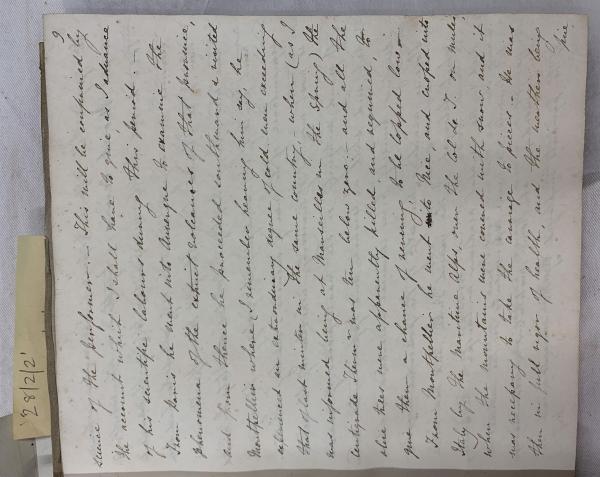 9
science of the performer — This will be confirmed by
the account which I shall have to give as I advance
of his scientific labours during this period. —
From Paris he went into Auvergne to examine the
phenomena of the extinct volcanoes of that province,
and from thence he proceeded southward & visited
Montpellier where (I remember hearing him say) he
witnessed an extraordinary degree of cold even exceeding
that of last winter in the same country, when (as I
was informed being at Marseilles in the Spring) the
Centigrade Thermr was ten below zero — and all the
olive trees were apparently killed and required, to
give them a chance of reviving, to be lopped low —
From Montpellier he went into Nice and crossed into
Italy by the Maritime Alps, over the Col de T. on mules,
when the mountains were covered with snow, and it
was necessary to take the carriage to pieces — He was
then in full vigor of health, and the weather being
fine
28/2/2'